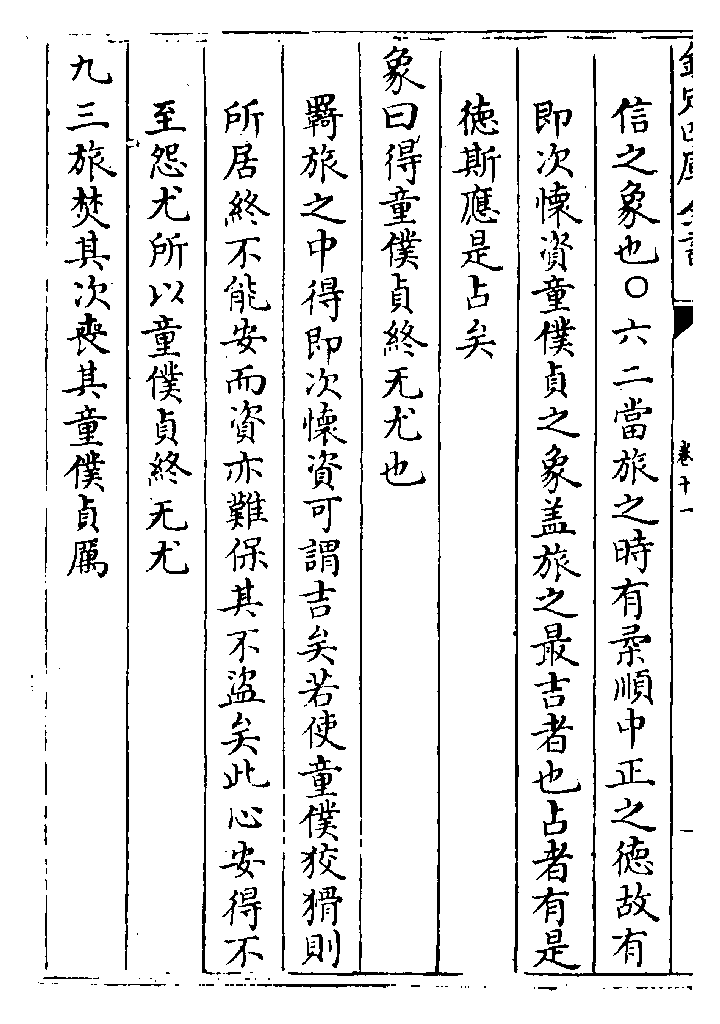 欽定四庫全書
卷十一
信之象也○六二當旅之時有柔順中正之徳故有
即次懐資童僕貞之象盖旅之最吉者也占者有是
徳斯應是占矣
象曰得童僕貞終无尤也
羇旅之中得即次懐資可謂吉矣若使童僕狡猾則
所居終不能安而資亦難保其不盜矣此心安得不
至怨尤所以童僕貞終无尤
九三旅焚其次喪其童僕貞厲